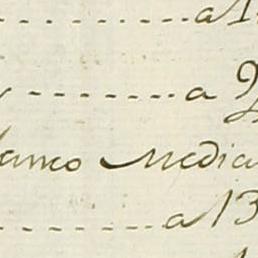 a 1
a 9
lanco Media
a 13